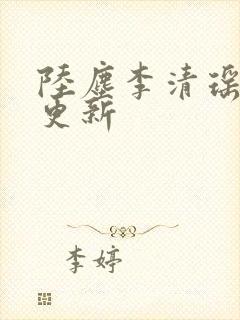 陸塵李清瑶
更新
李婷